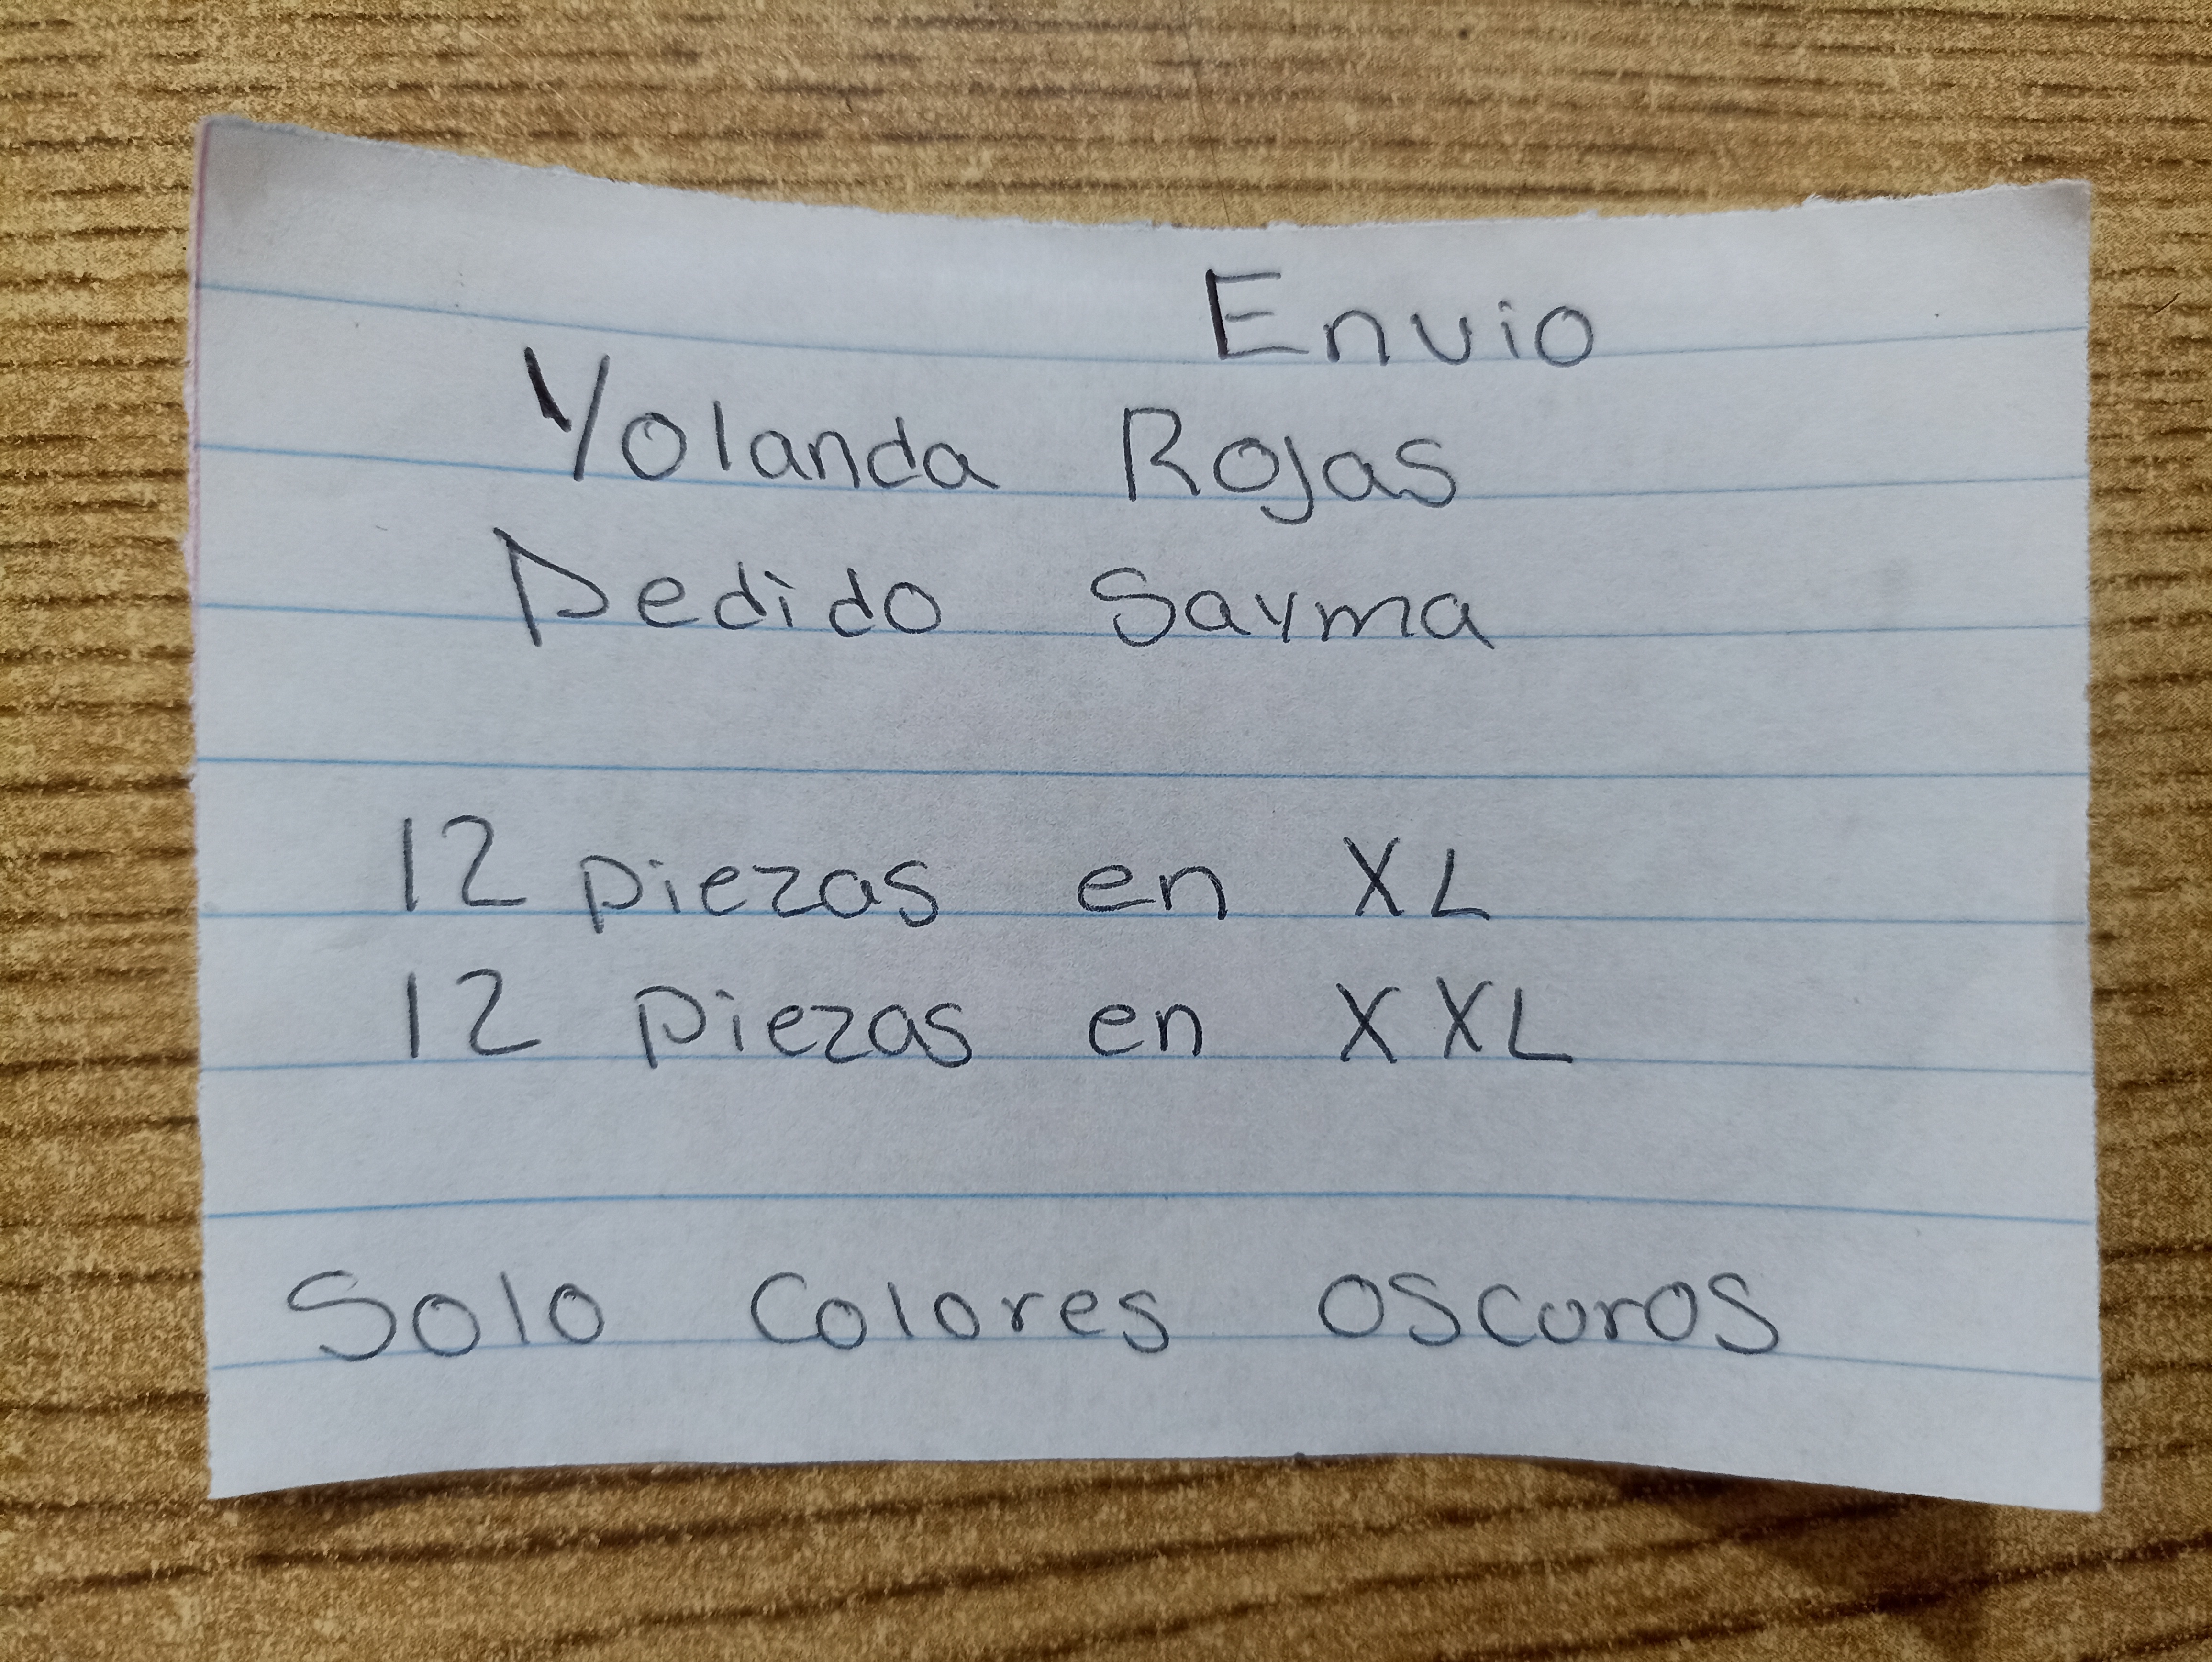 Envio
Yolanda Rojas
Pedido Sayma
12 piezas en XL
12 piezas en XXL
Solo Colores oscuros